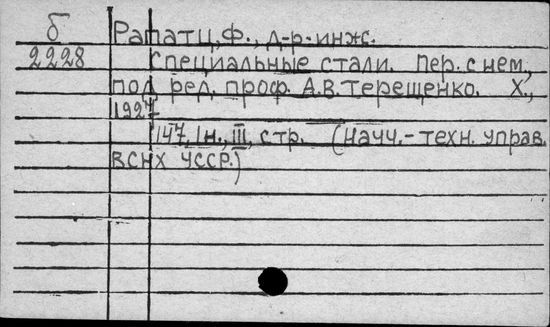 б Рапатц, Ф., д-р-инж.
2228 Специальные стали. Пер. с нем,
под ред. проф. А.В. Терещенко. Х.,
1927
147, 1н., III, стр. (научн.-техн. управ.
ВСНХ УССР.)